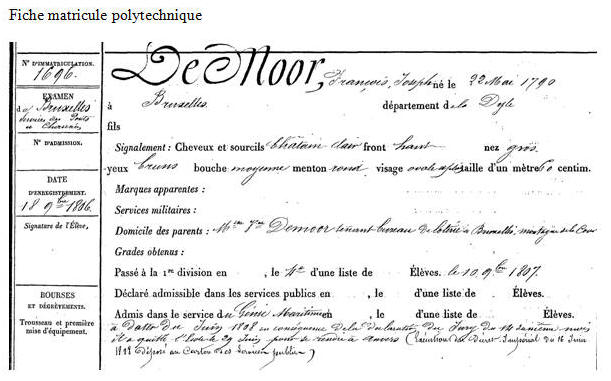 Fiche matricule polytechnique
N° D'IMMATRICULATION.
1696.
EXAMEN
de Bruxelles
Services des Ponts
et Chaussées
N° D'ADMISSION.
DATE
D'ENREGISTREMENT.
18 9bre 1806.
Signature de l'Élève,
BOURSES
ET DÉGRÈVEMENTS.
Trousseau et première
mise d'équipement.
De Moor, François, Joseph né le 22 Mai 1790
à Bruxelles. département de la Dyle
fils
Signalement : Cheveux et sourcils Chatain clair front haut nez gros.
yeux bruns bouche moyenne menton rond visage ovale taille d'un mètre 60 centim.
Marques apparentes :
Services militaires :
Domicile des parents : Demoor tenant bureau de loterie à Bruxelles, montagne de la Cour
Grades obtenus :
Passé à la 1re division en , le 4e d'une liste de Élèves. le 10 9bre 1807.
Déclaré admissible dans les services publics en , le d'une liste de Élèves.
Admis dans le service du Génie Maritime en , le d'une liste de Élèves.
à datter du Juin 1808 en conséquence de la déclaration du Jury du 14 même mois
il a quitté l'Ecole le 29 Juin pour se rendre à Anvers (Exécution du Décret Impérial du 16 Juin
1808 Déposé au Carton des Services publics)